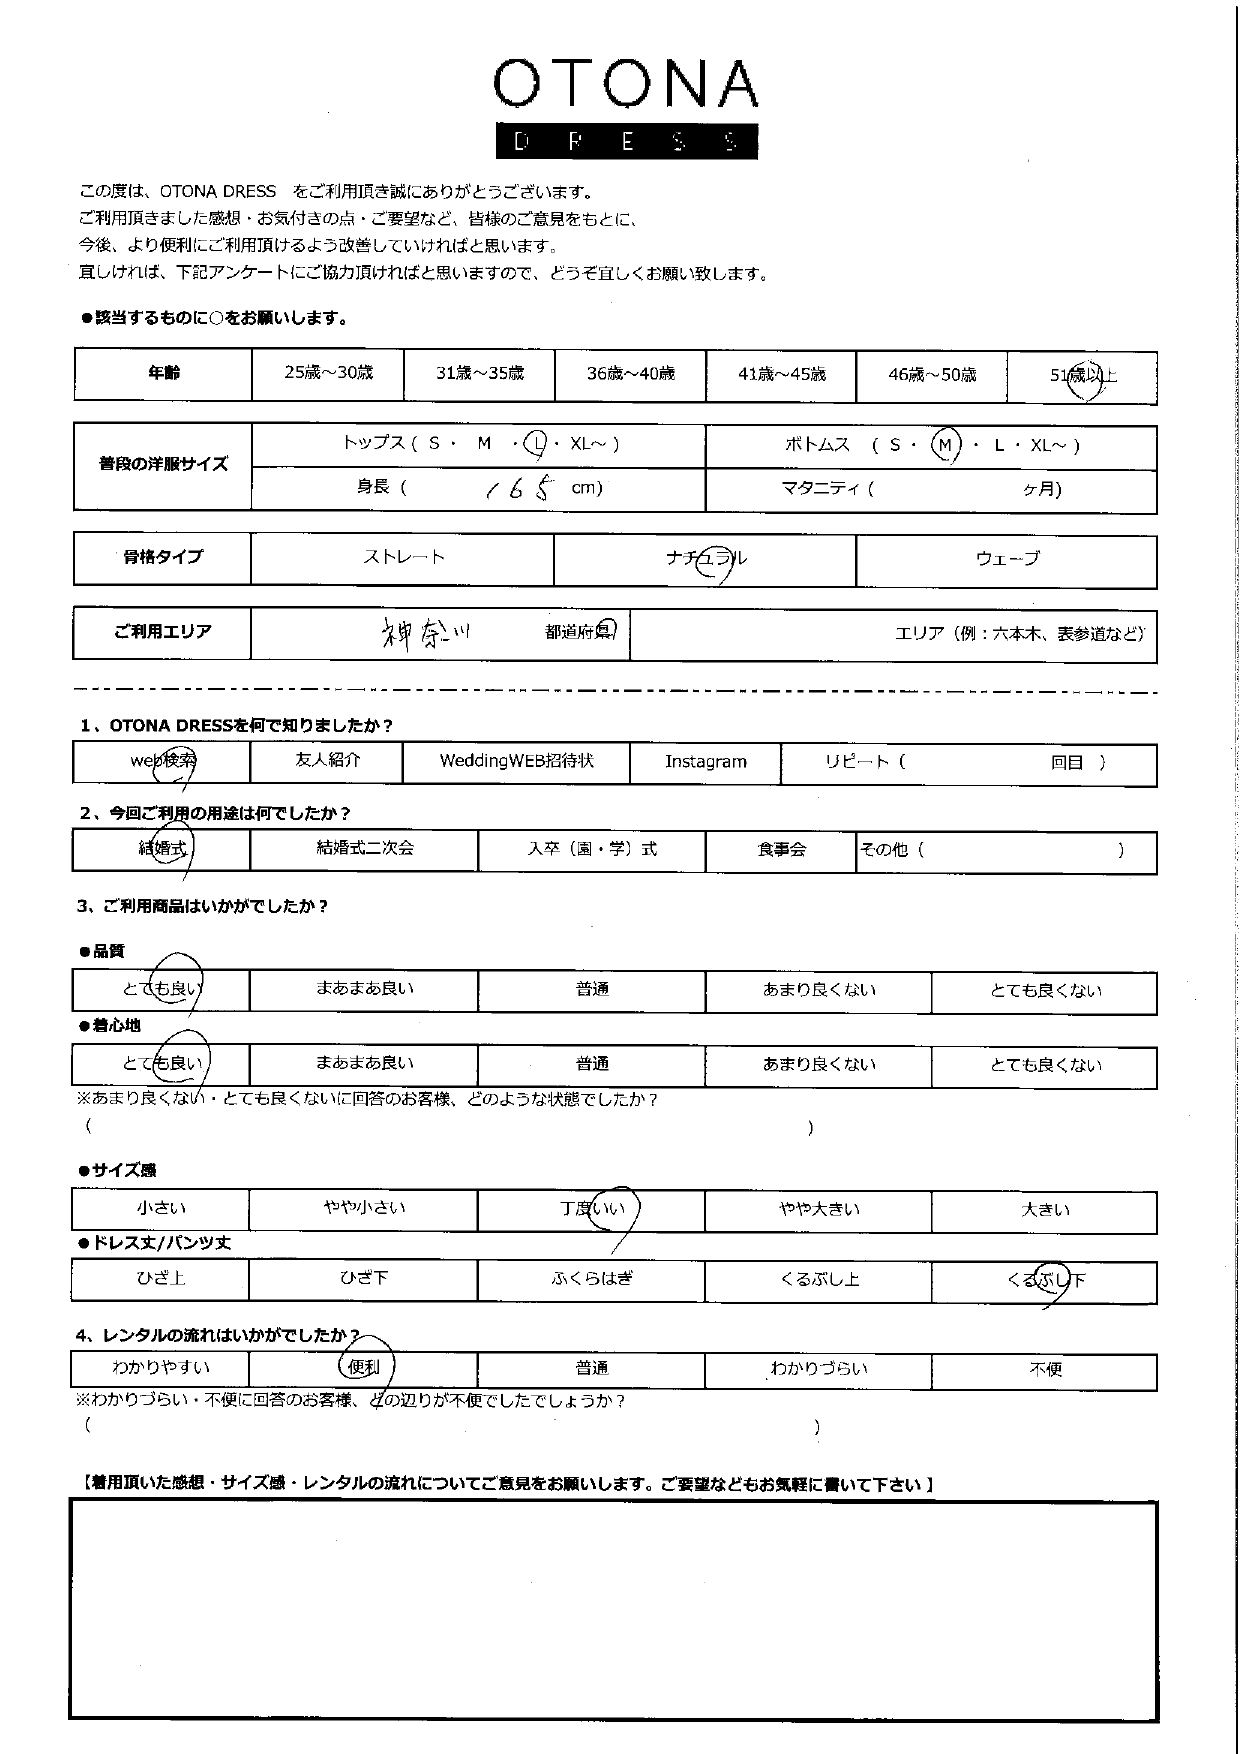 OTONA
DRESS
この度は、OTONA DRESS をご利用頂き誠にありがとうございます。
ご利用頂きました感想・お気付きの点・ご要望など、皆様のご意見をもとに、
今後、より便利にご利用頂けるよう改善していければと思います。
宜しければ、下記アンケートにご協力頂ければと思いますので、どうぞ宜しくお願い致します。
●該当するものに○をお願いします。
年齢 25歳～30歳 31歳～35歳 36歳～40歳 41歳～45歳 46歳～50歳 51歳以上
普段の洋服サイズ トップス ( S ・ M ・ L ・ XL～ ) ボトムス ( S ・ M ・ L ・ XL～ )
身長 ( 165 cm) マタニティ ( ヶ月)
骨格タイプ ストレート ナチュラル ウェーブ
ご利用エリア 神奈川 都道府県 エリア（例：六本木、表参道など）
1、OTONA DRESSを何で知りましたか？
web検索 友人紹介 WeddingWEB招待状 Instagram リピート ( 回目 )
2、今回ご利用の用途は何でしたか？
結婚式 結婚式二次会 入卒（園・学）式 食事会 その他 ( )
3、ご利用商品はいかがでしたか？
●品質
とても良い まあまあ良い 普通 あまり良くない とても良くない
●着心地
とても良い まあまあ良い 普通 あまり良くない とても良くない
※あまり良くない・とても良くないに回答のお客様、どのような状態でしたか？
( )
●サイズ感
小さい やや小さい 丁度いい やや大きい 大きい
●ドレス丈/パンツ丈
ひざ上 ひざ下 ふくらはぎ くるぶし上 くるぶし下
4、レンタルの流れはいかがでしたか？
わかりやすい 便利 普通 わかりづらい 不便
※わかりづらい・不便に回答のお客様、どの辺りが不便でしたでしょうか？
( )
【着用頂いた感想・サイズ感・レンタルの流れについてご意見をお願いします。ご要望などもお気軽に書いて下さい 】